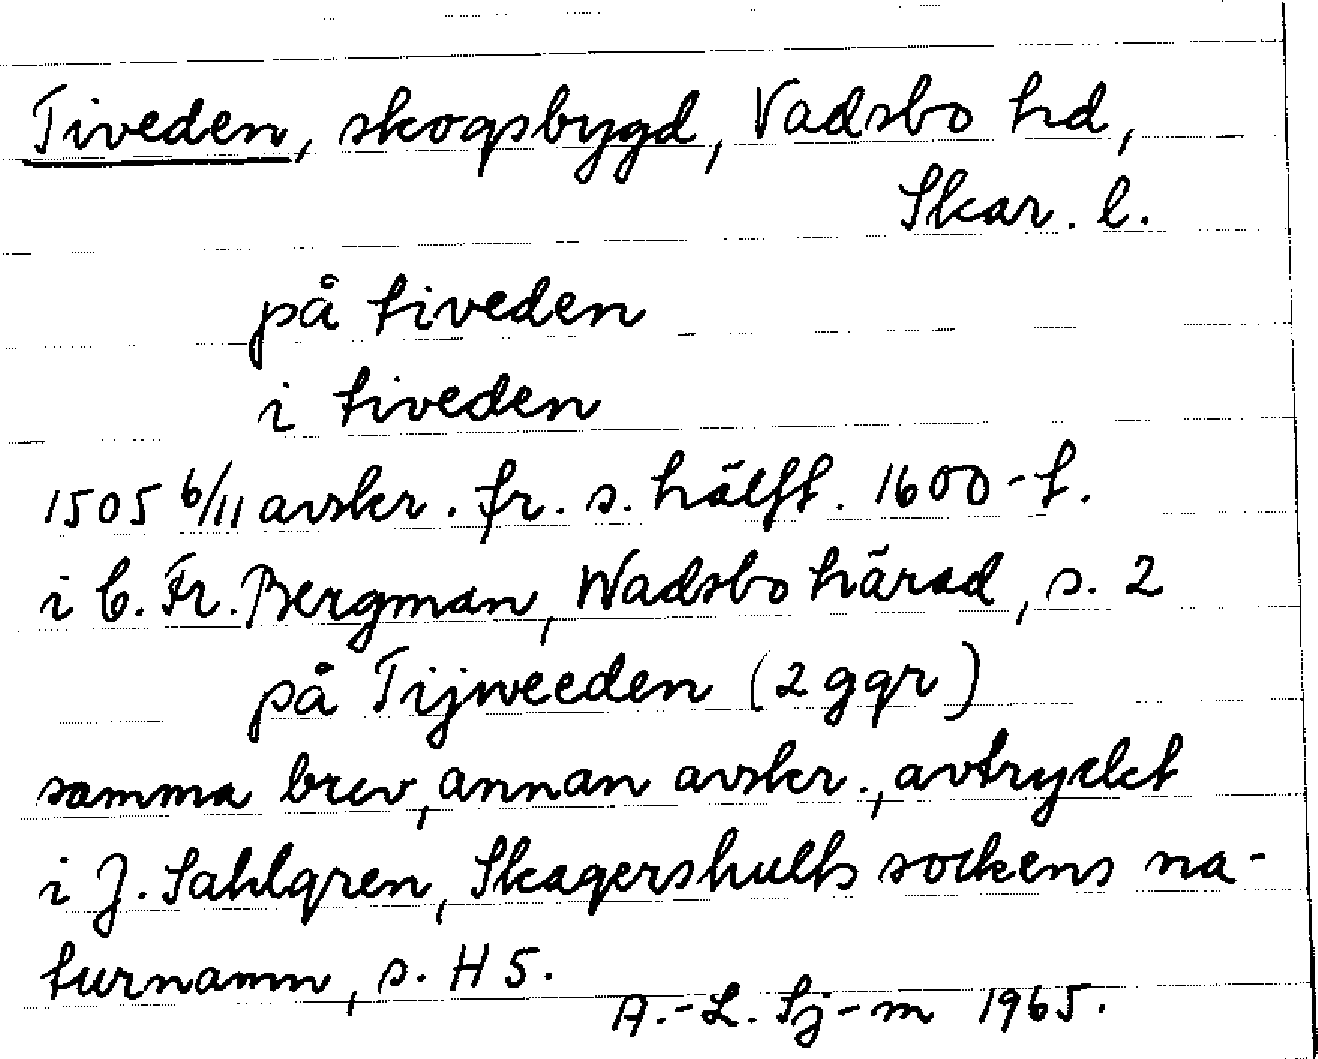 Tiveden, skogsbygd, Vadsbo hd,
Skar. l.
på tiveden
i tiveden
1505 6/11 avskr. fr. s. hälft. 1600-t.
i C. Fr. Bergman, Wadsbo härad, s. 2
på Tijweeden (2 ggr)
samma brev, annan avskr., avtryckt
i J. Sahlgren, Skagershults sockens na-
turnamn, s. H 5.
A.-L. Sj-m 1965.